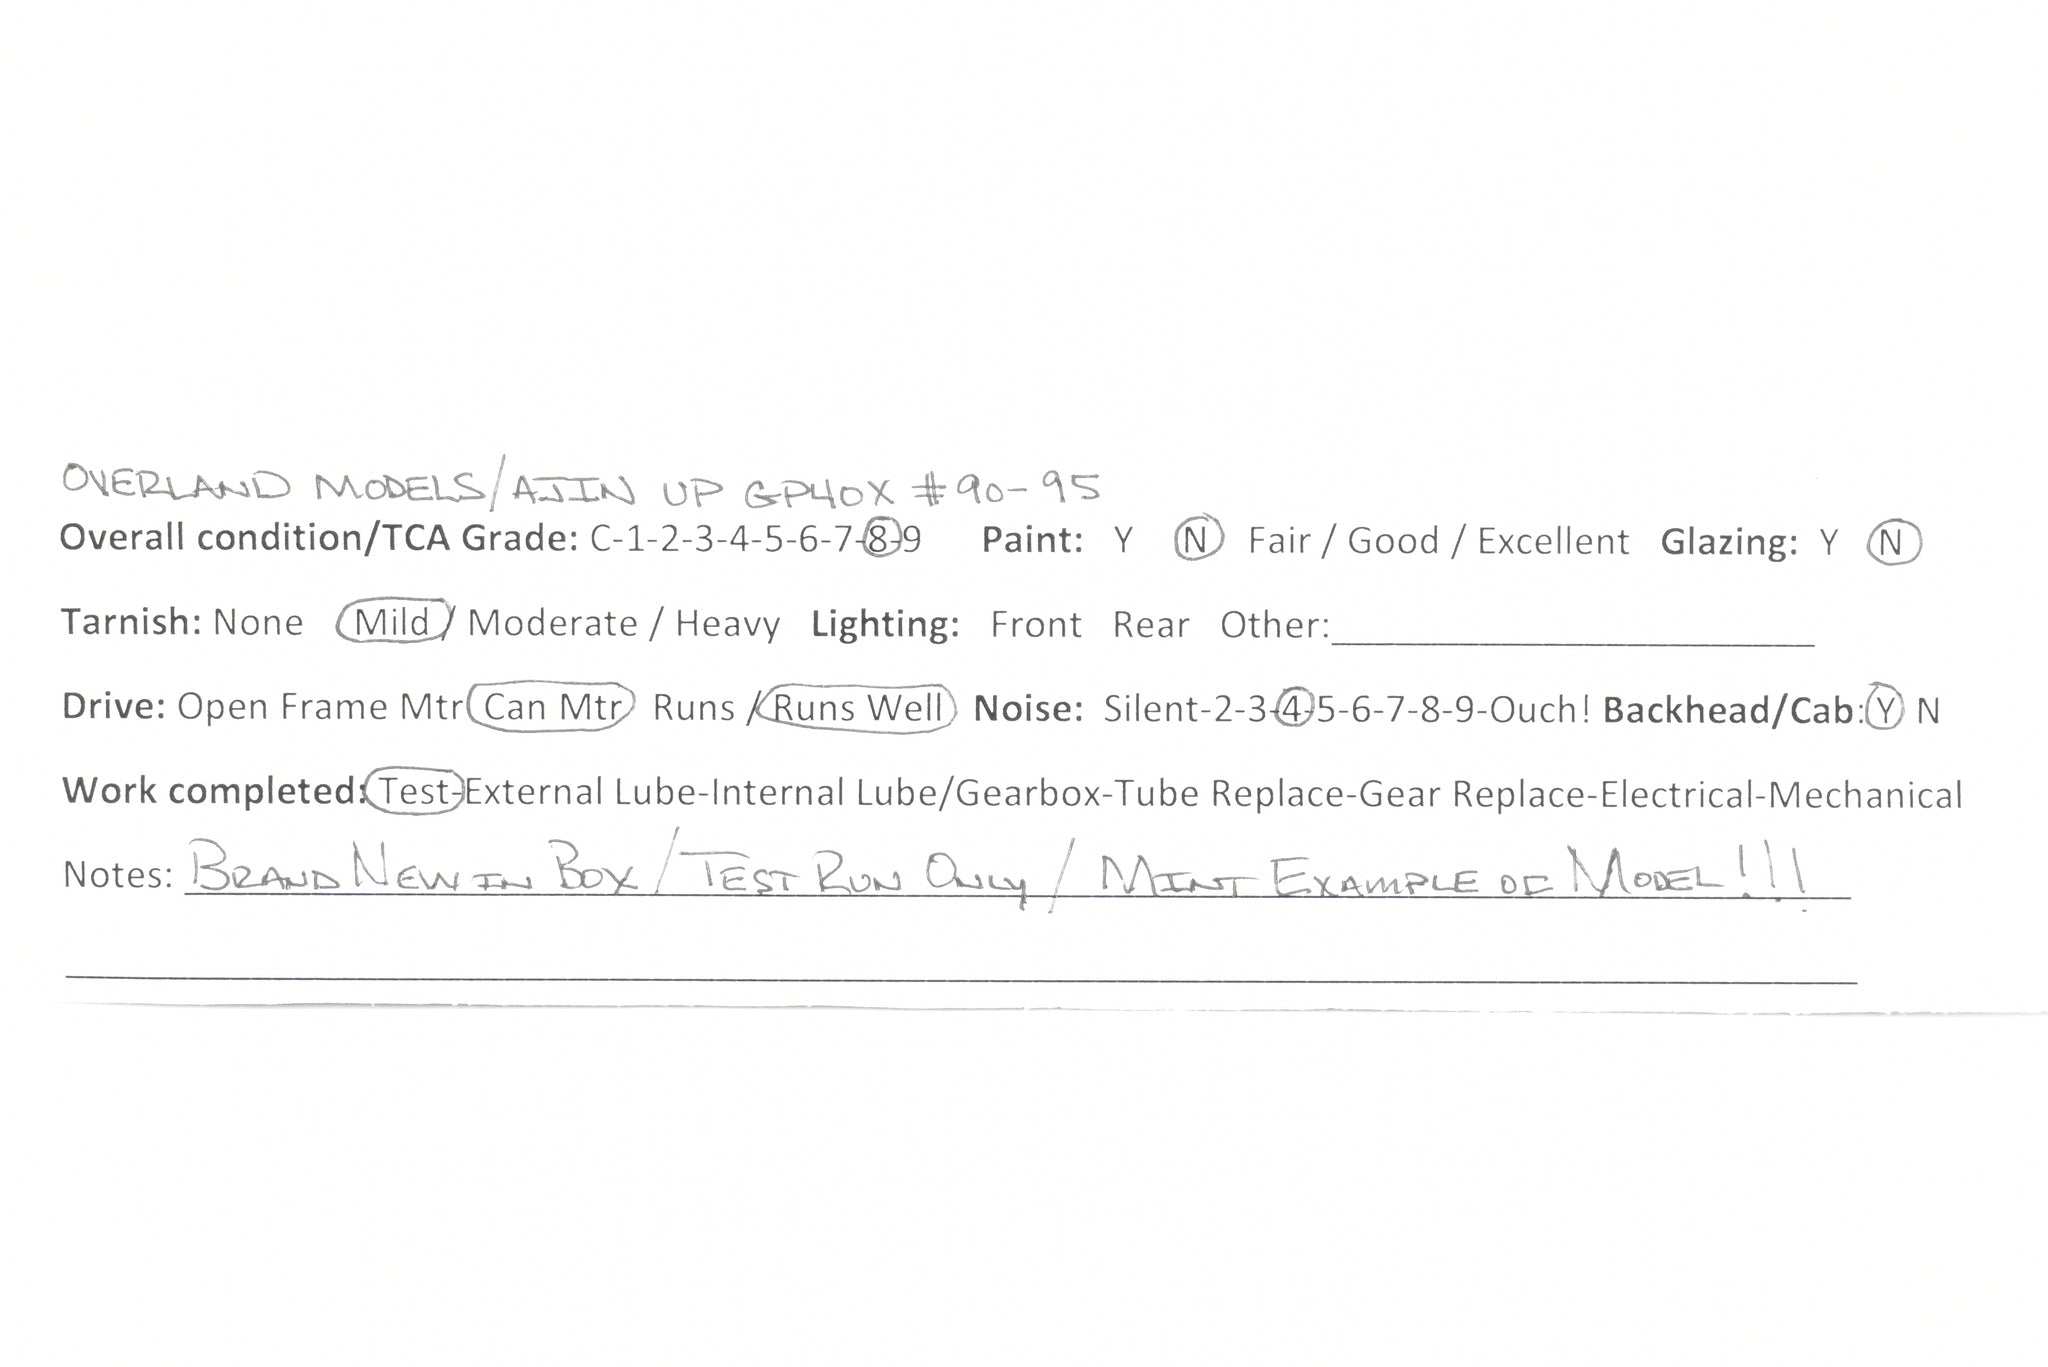 OVERLAND MODELS/AJIN UP GP40X #90-95
Overall condition/TCA Grade: C-1-2-3-4-5-6-7-8-9 Paint: Y N Fair / Good / Excellent Glazing: Y N
Tarnish: None Mild / Moderate / Heavy Lighting: Front Rear Other:
Drive: Open Frame Mtr Can Mtr Runs / Runs Well Noise: Silent-2-3-4-5-6-7-8-9-Ouch! Backhead/Cab: Y N
Work completed: Test-External Lube-Internal Lube/Gearbox-Tube Replace-Gear Replace-Electrical-Mechanical
Notes: BRAND NEW IN BOX / TEST RUN ONLY / MINT EXAMPLE OF MODEL!!!